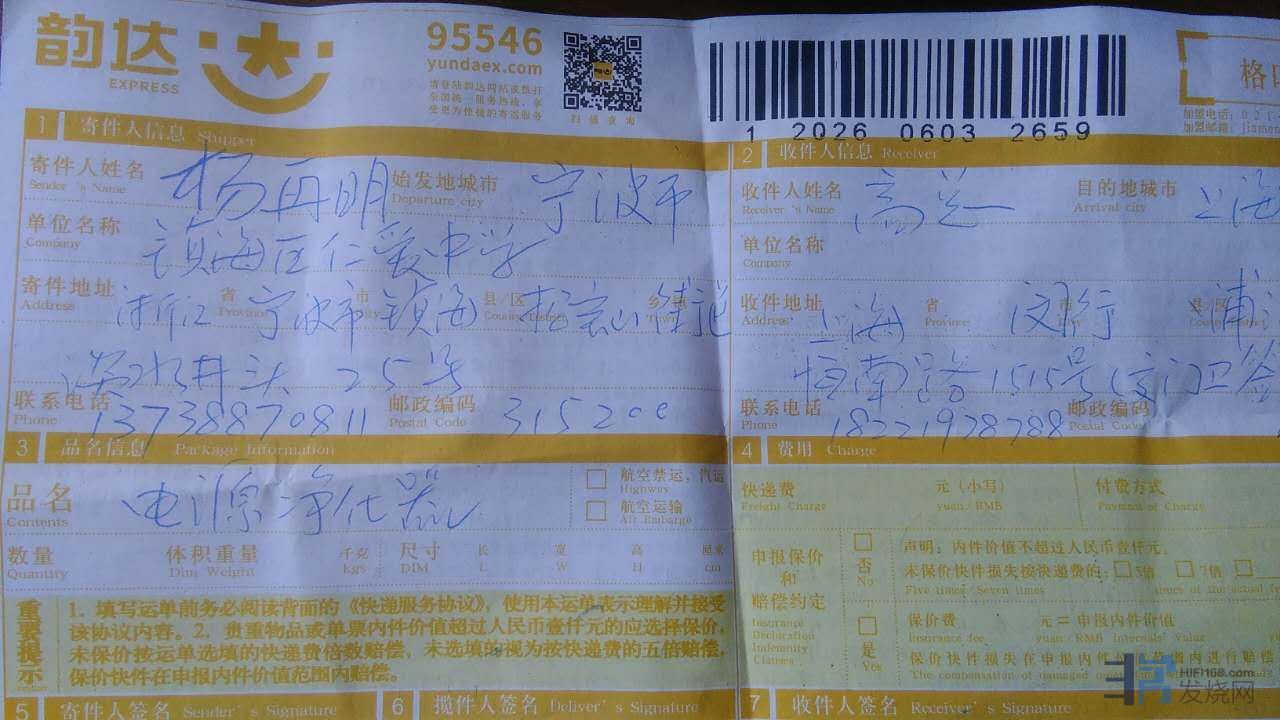 韵达
EXPRESS
95546
yundaex.com
扫描查询
1 2026 0603 2659
格
1 寄件人信息 Shipper
寄件人姓名 杨再明 始发地城市 宁波市
Sender's Name Departure city
单位名称 镇海区仁爱中学
Company
寄件地址 浙江 省 宁波市 市 镇海 县/区 招宝山街道
Address Province
井头 25号
联系电话 13738870811 邮政编码 315200
Phone Postal Code
2 收件人信息 Receiver
收件人姓名 目的地城市 上海
Receiver's Name Arrival city
单位名称
Company
收件地址 上海 省 闵行 浦
Address Province
恒南路1515号
联系电话 18221928788 邮政编码
Phone Postal Code
3 品名信息 Package Information
品名 电源净化器
Contents
航空禁运,汽运
Highway
航空运输
Air Embargo
数量 体积重量 千克 尺寸 长 宽 高 厘米
Quantity Dim Weight kgs DIM L W H cm
重要提示
1. 填写运单前务必阅读背面的《快递服务协议》,使用本运单表示理解并接受
该协议内容。2. 贵重物品或单票内件价值超过人民币壹仟元的应选择保价,
未保价按运单选填的快递费倍数赔偿,未选填的视为按快递费的五倍赔偿,
保价快件在申报内件价值范围内赔偿。
4 费用 Charge
快递费 元(小写) 付费方式
Freight Charge yuan/RMB Payment of Charge
申报保价和赔偿约定
Insurance
Declaration
Indemnity
Clauses
否
No
声明:内件价值不超过人民币壹仟元,
未保价快件损失按快递费的: 5倍 7倍
Five times / Seven times
是
Yes
保价费 元=申报内件价值
Insurance fee
保价快件损失在申报内件价
5 寄件人签名 Sender's Signature
6 揽件人签名 Deliver's Signature
7 收件人签名 Receiver's Signature
HIFI168.com
发烧网